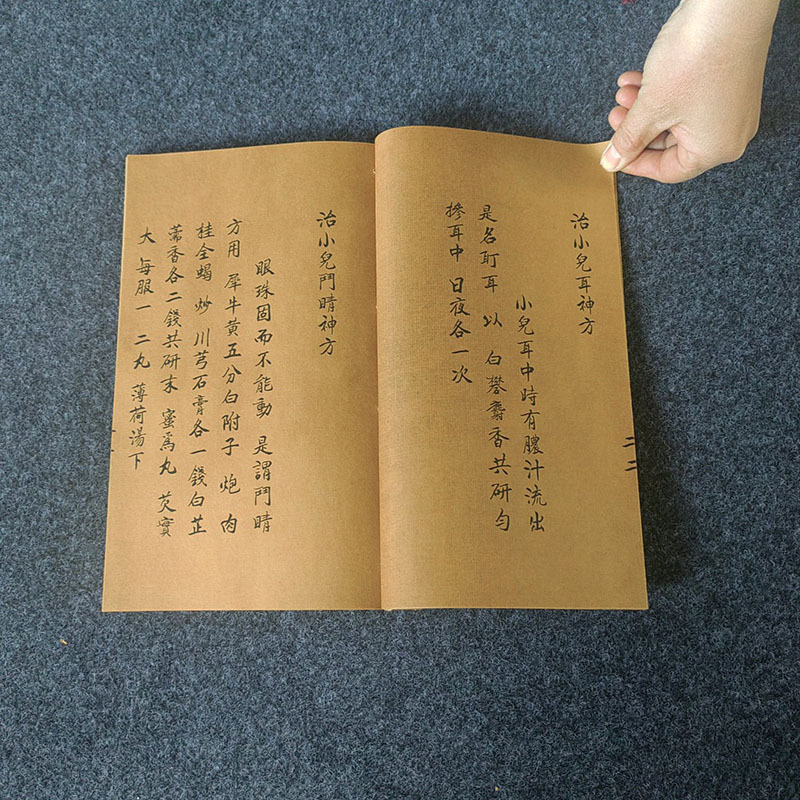 治小兒耳神方
小兒耳中時有膿汁流出
是名耵耳 以 白礬麝香共研勻
摻耳中 日夜各一次
治小兒鬥睛神方
眼珠固而不能動 是謂鬥睛
方用 犀牛黃五分白附子 炮 肉
桂全蝎 炒 川芎石膏各一錢白芷
藿香各二錢共研末 蜜為丸 芡實
大 每服一 二丸 薄荷湯下